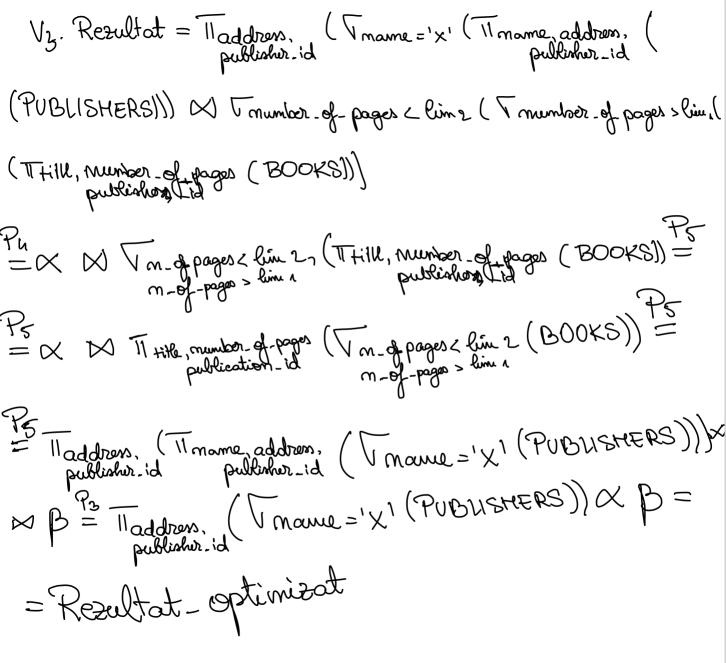 V3. Rezultat = Π address, publisher_id (σ name='x' (Π name, address, publisher_id (
(PUBLISHERS))) ⋈ σ number_of_pages < lim2 (σ number_of pages > lim1 (
(Π title, number_of_pages (BOOKS))]
P4 = α ⋈ σ n_of pages < lim 2, n_of_pages > lim 1 (Π title, number_of_pages (BOOKS)) P5 =
P5 = α ⋈ Π title, number_of-pages publication_id (σ n_of pages < lim 2 n_of-pages > lim 1 (BOOKS)) P5 =
P5 = Π address, publisher_id (Π name, address, publisher_id (σ name='x' (PUBLISHERS))) ⋈
⋈ β P3 = Π address, publisher_id (σ name='x' (PUBLISHERS)) α β =
= Rezultat_optimizat